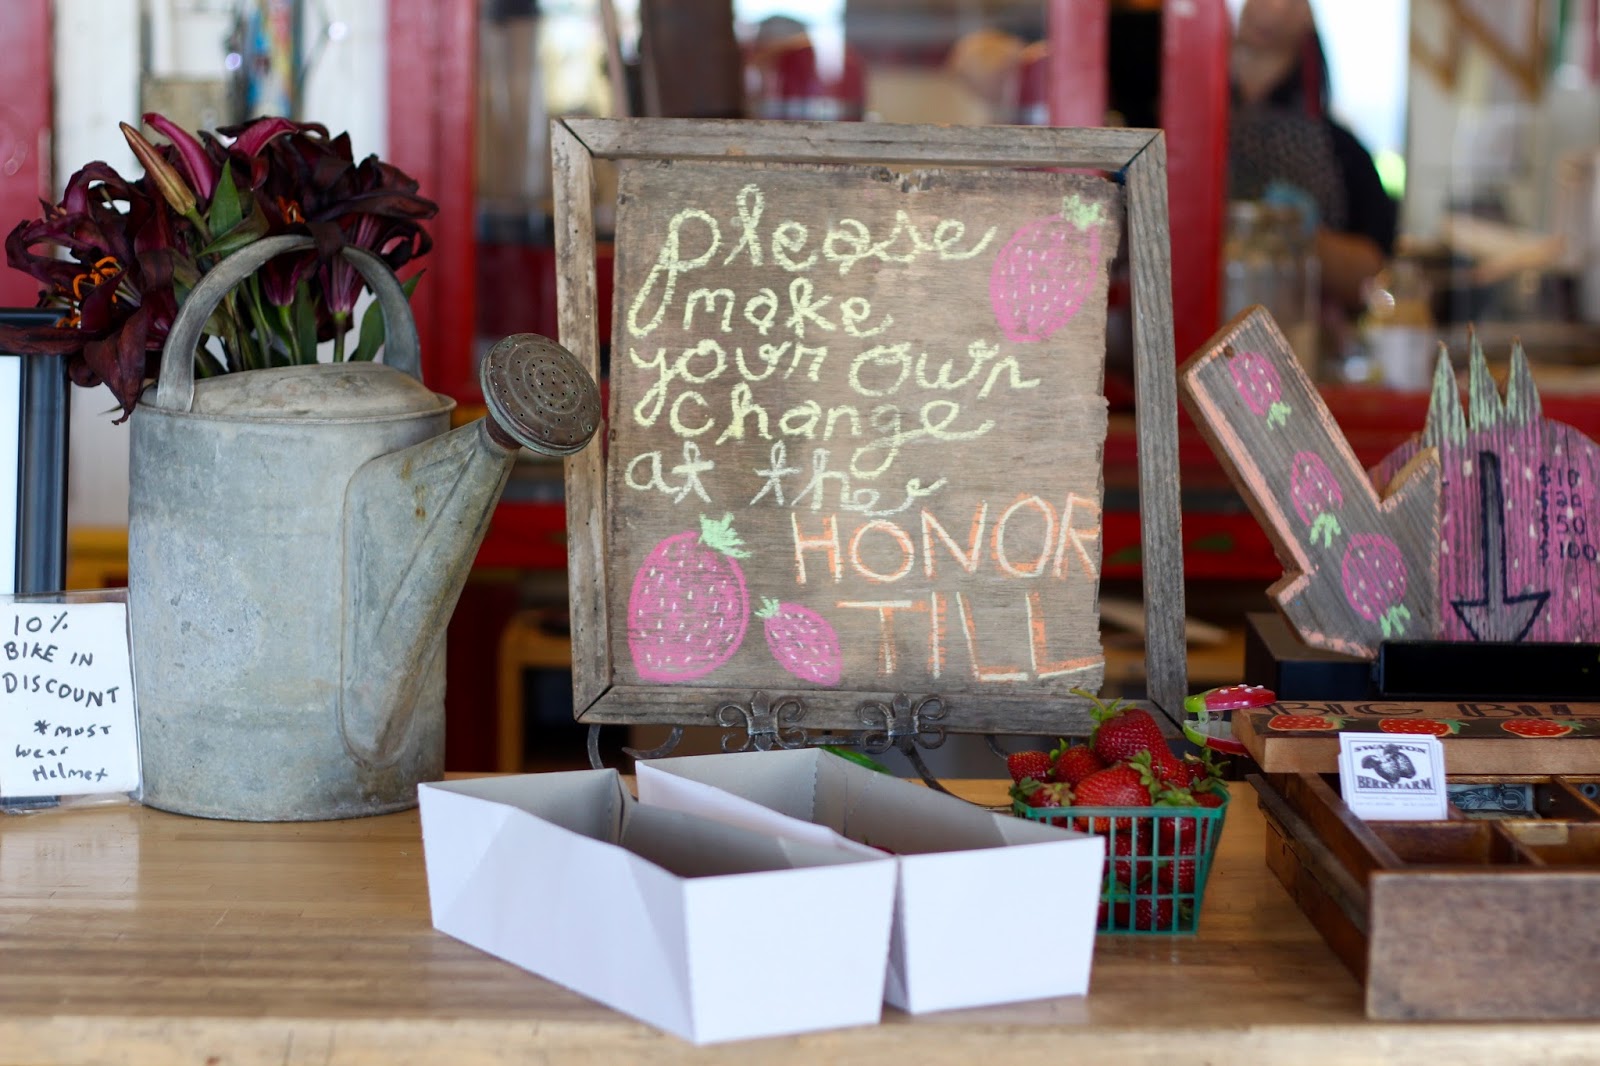 please
make
your own
change
at the
HONOR
TILL
10%
BIKE IN
DISCOUNT
*MUST
wear
Helmet
$10
$20
$50
$100
BIG BILL
SWANTON
BERRY FARM